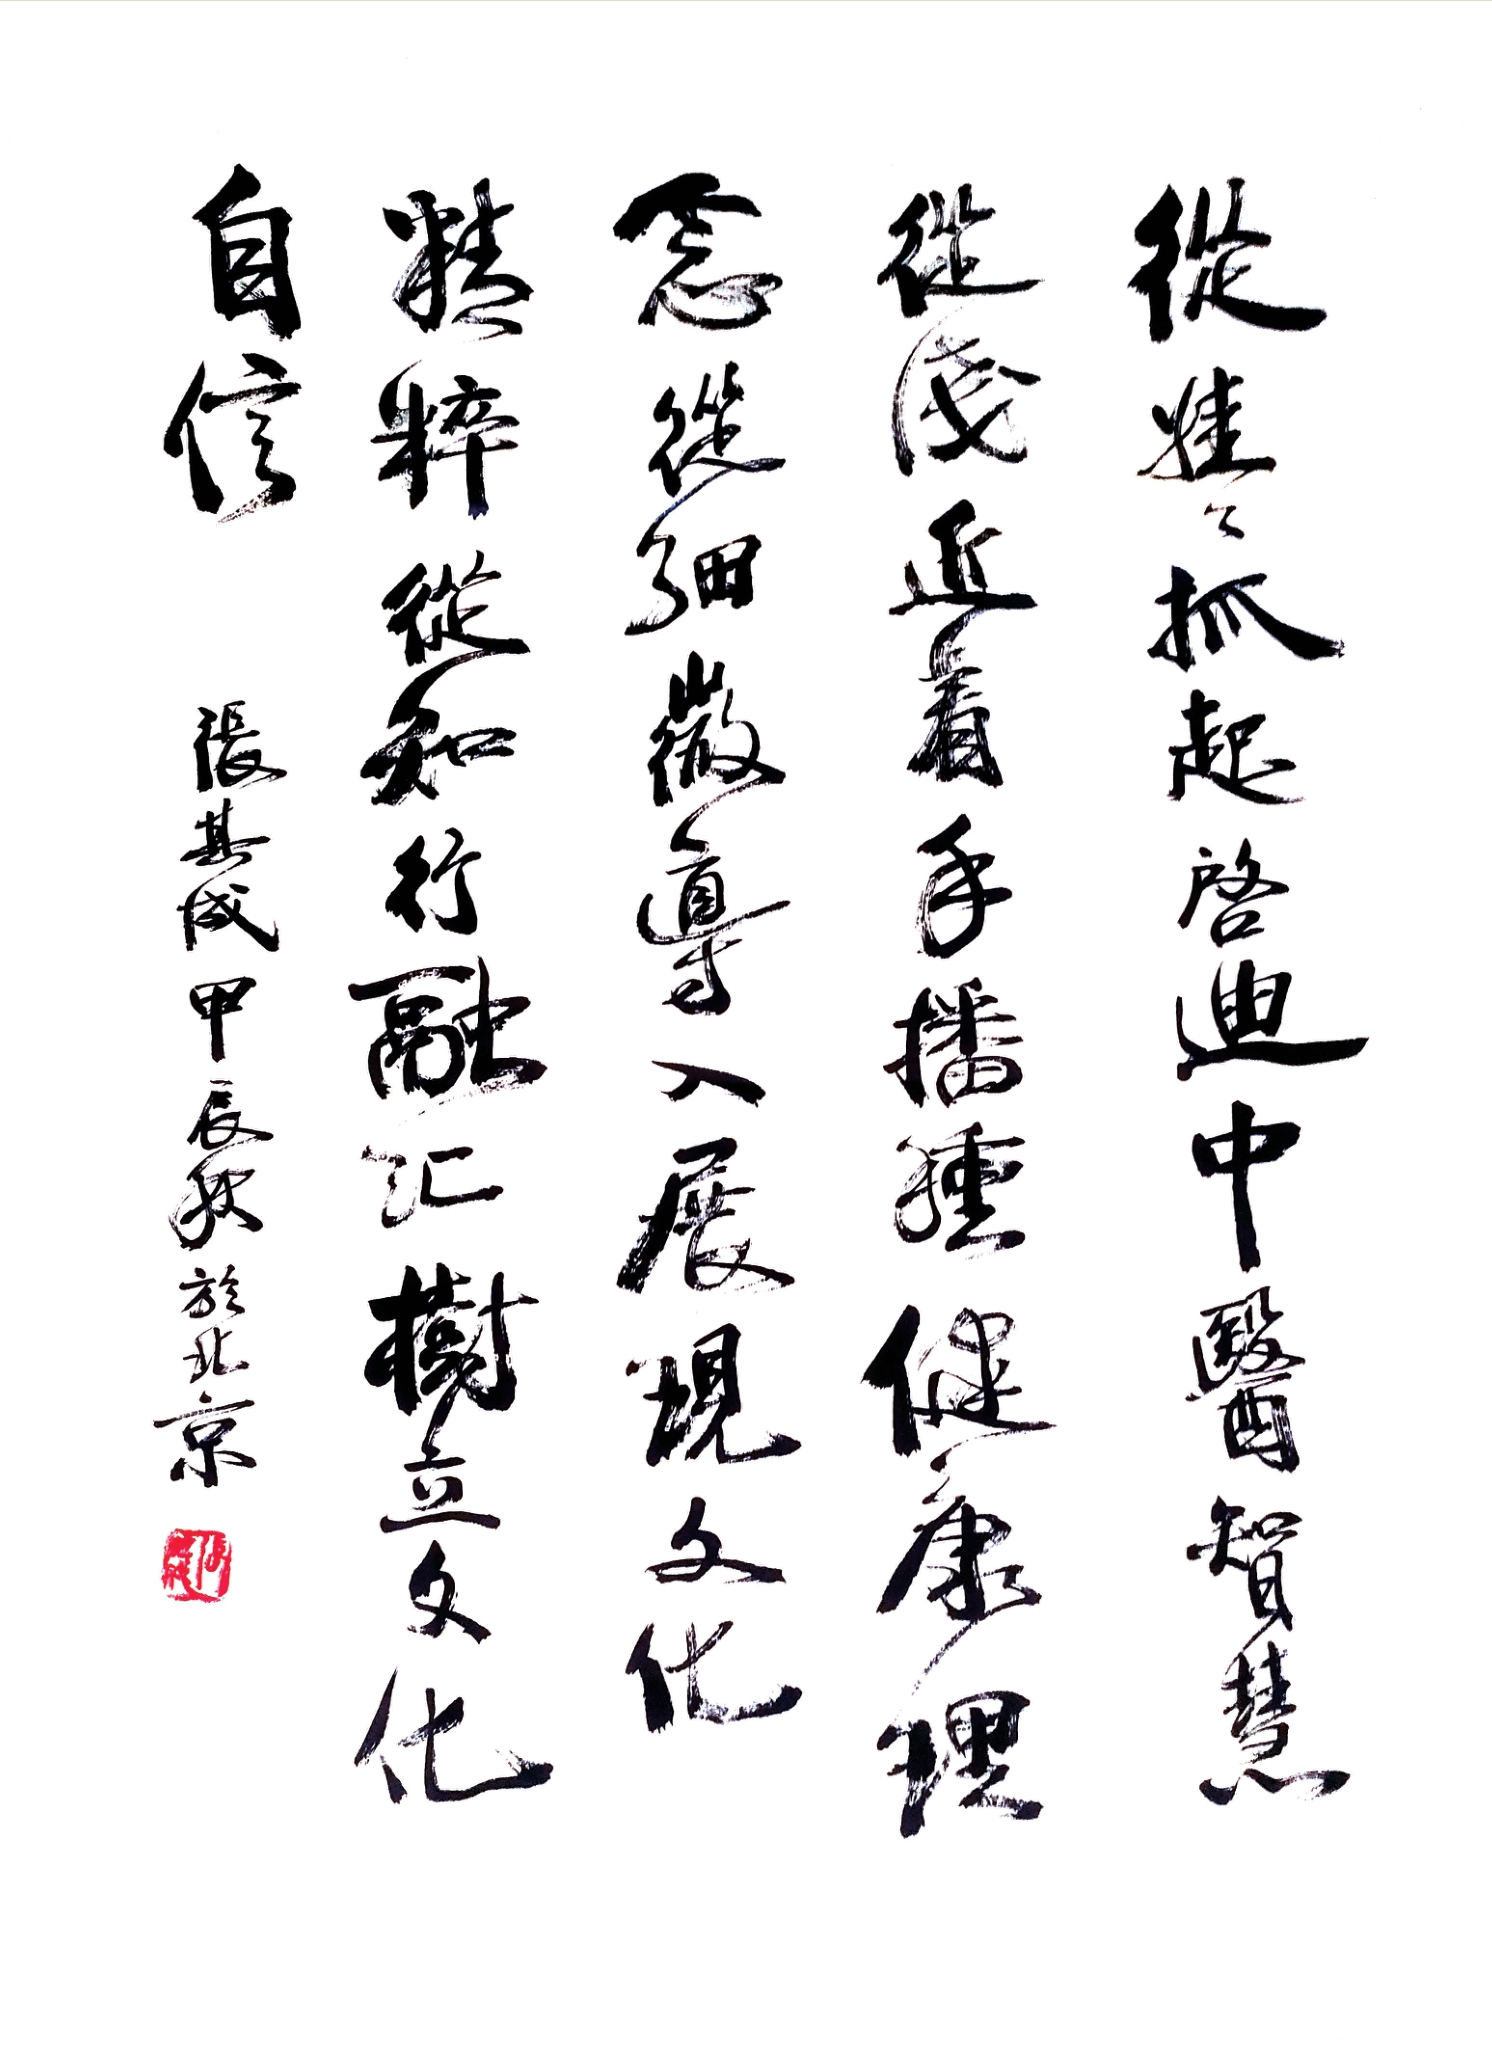 從娃々抓起啓迪中醫智慧
從淺近着手播種健康理
念從細微導入展現文化
精粹從知行融汇樹立文化
自信
張其成甲辰秋於北京